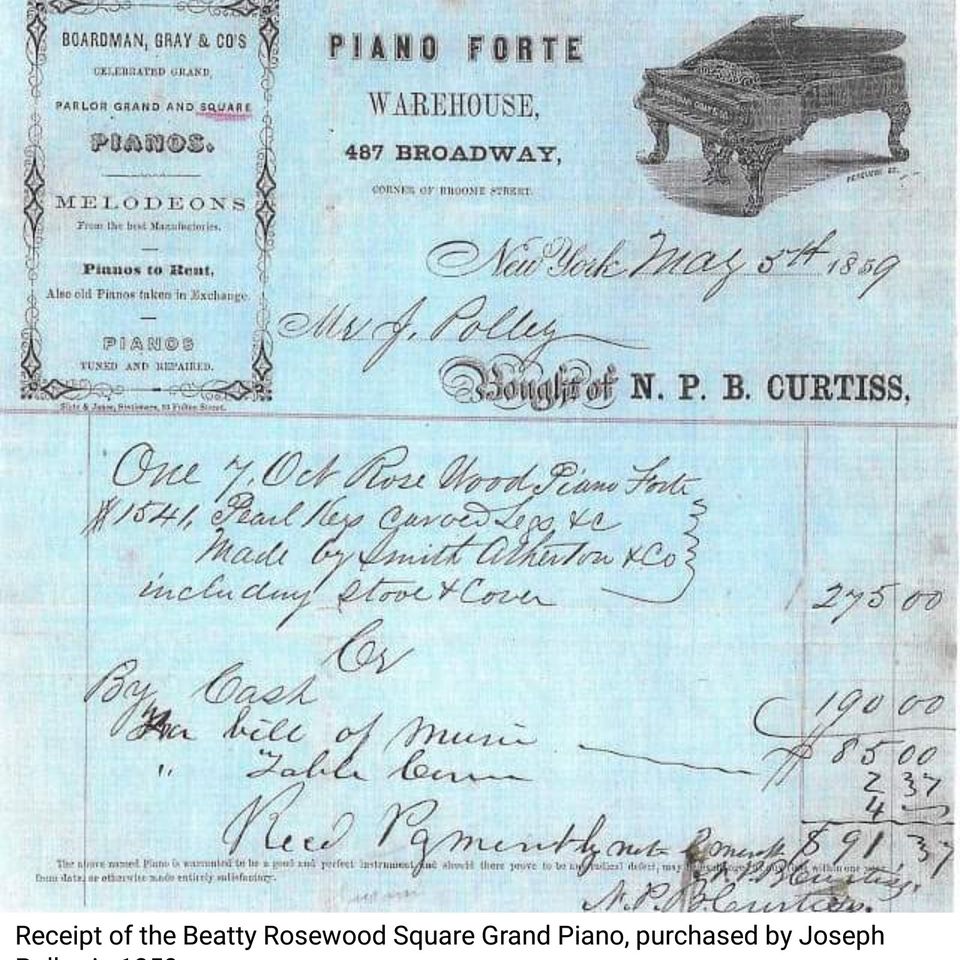 BOARDMAN, GRAY & CO'S
CELEBRATED GRAND,
PARLOR GRAND AND SQUARE
PIANOS.
MELODEONS
From the best Manufactories.
Pianos to Rent,
Also old Pianos taken in Exchange.
PIANOS
TUNED AND REPAIRED.
Slote & Janes, Stationers, 93 Fulton Street.
PIANO FORTE
WAREHOUSE,
487 BROADWAY,
CORNER OF BROOME STREET.
New York May 5th 1859
Mr J. Polley
Bought of N. P. B. CURTISS,
One 7. Oct Rose Wood Piano Forte
#1541, Pearl Keys Carved Legs, &c
Made by Smith Atherton & Co
including Stool & Cover 275 00
Cr
By Cash 190 00
bill of Music $ 85 00
" Table Cover 2 37
4
Recd Payment by note $ 91 37
The above named Piano is warranted to be a good and perfect instrument, and should there prove to be any radical defect, may be within one year
from date, or otherwise made entirely satisfactory.
N. P. B. Curtiss.
Receipt of the Beatty Rosewood Square Grand Piano, purchased by Joseph